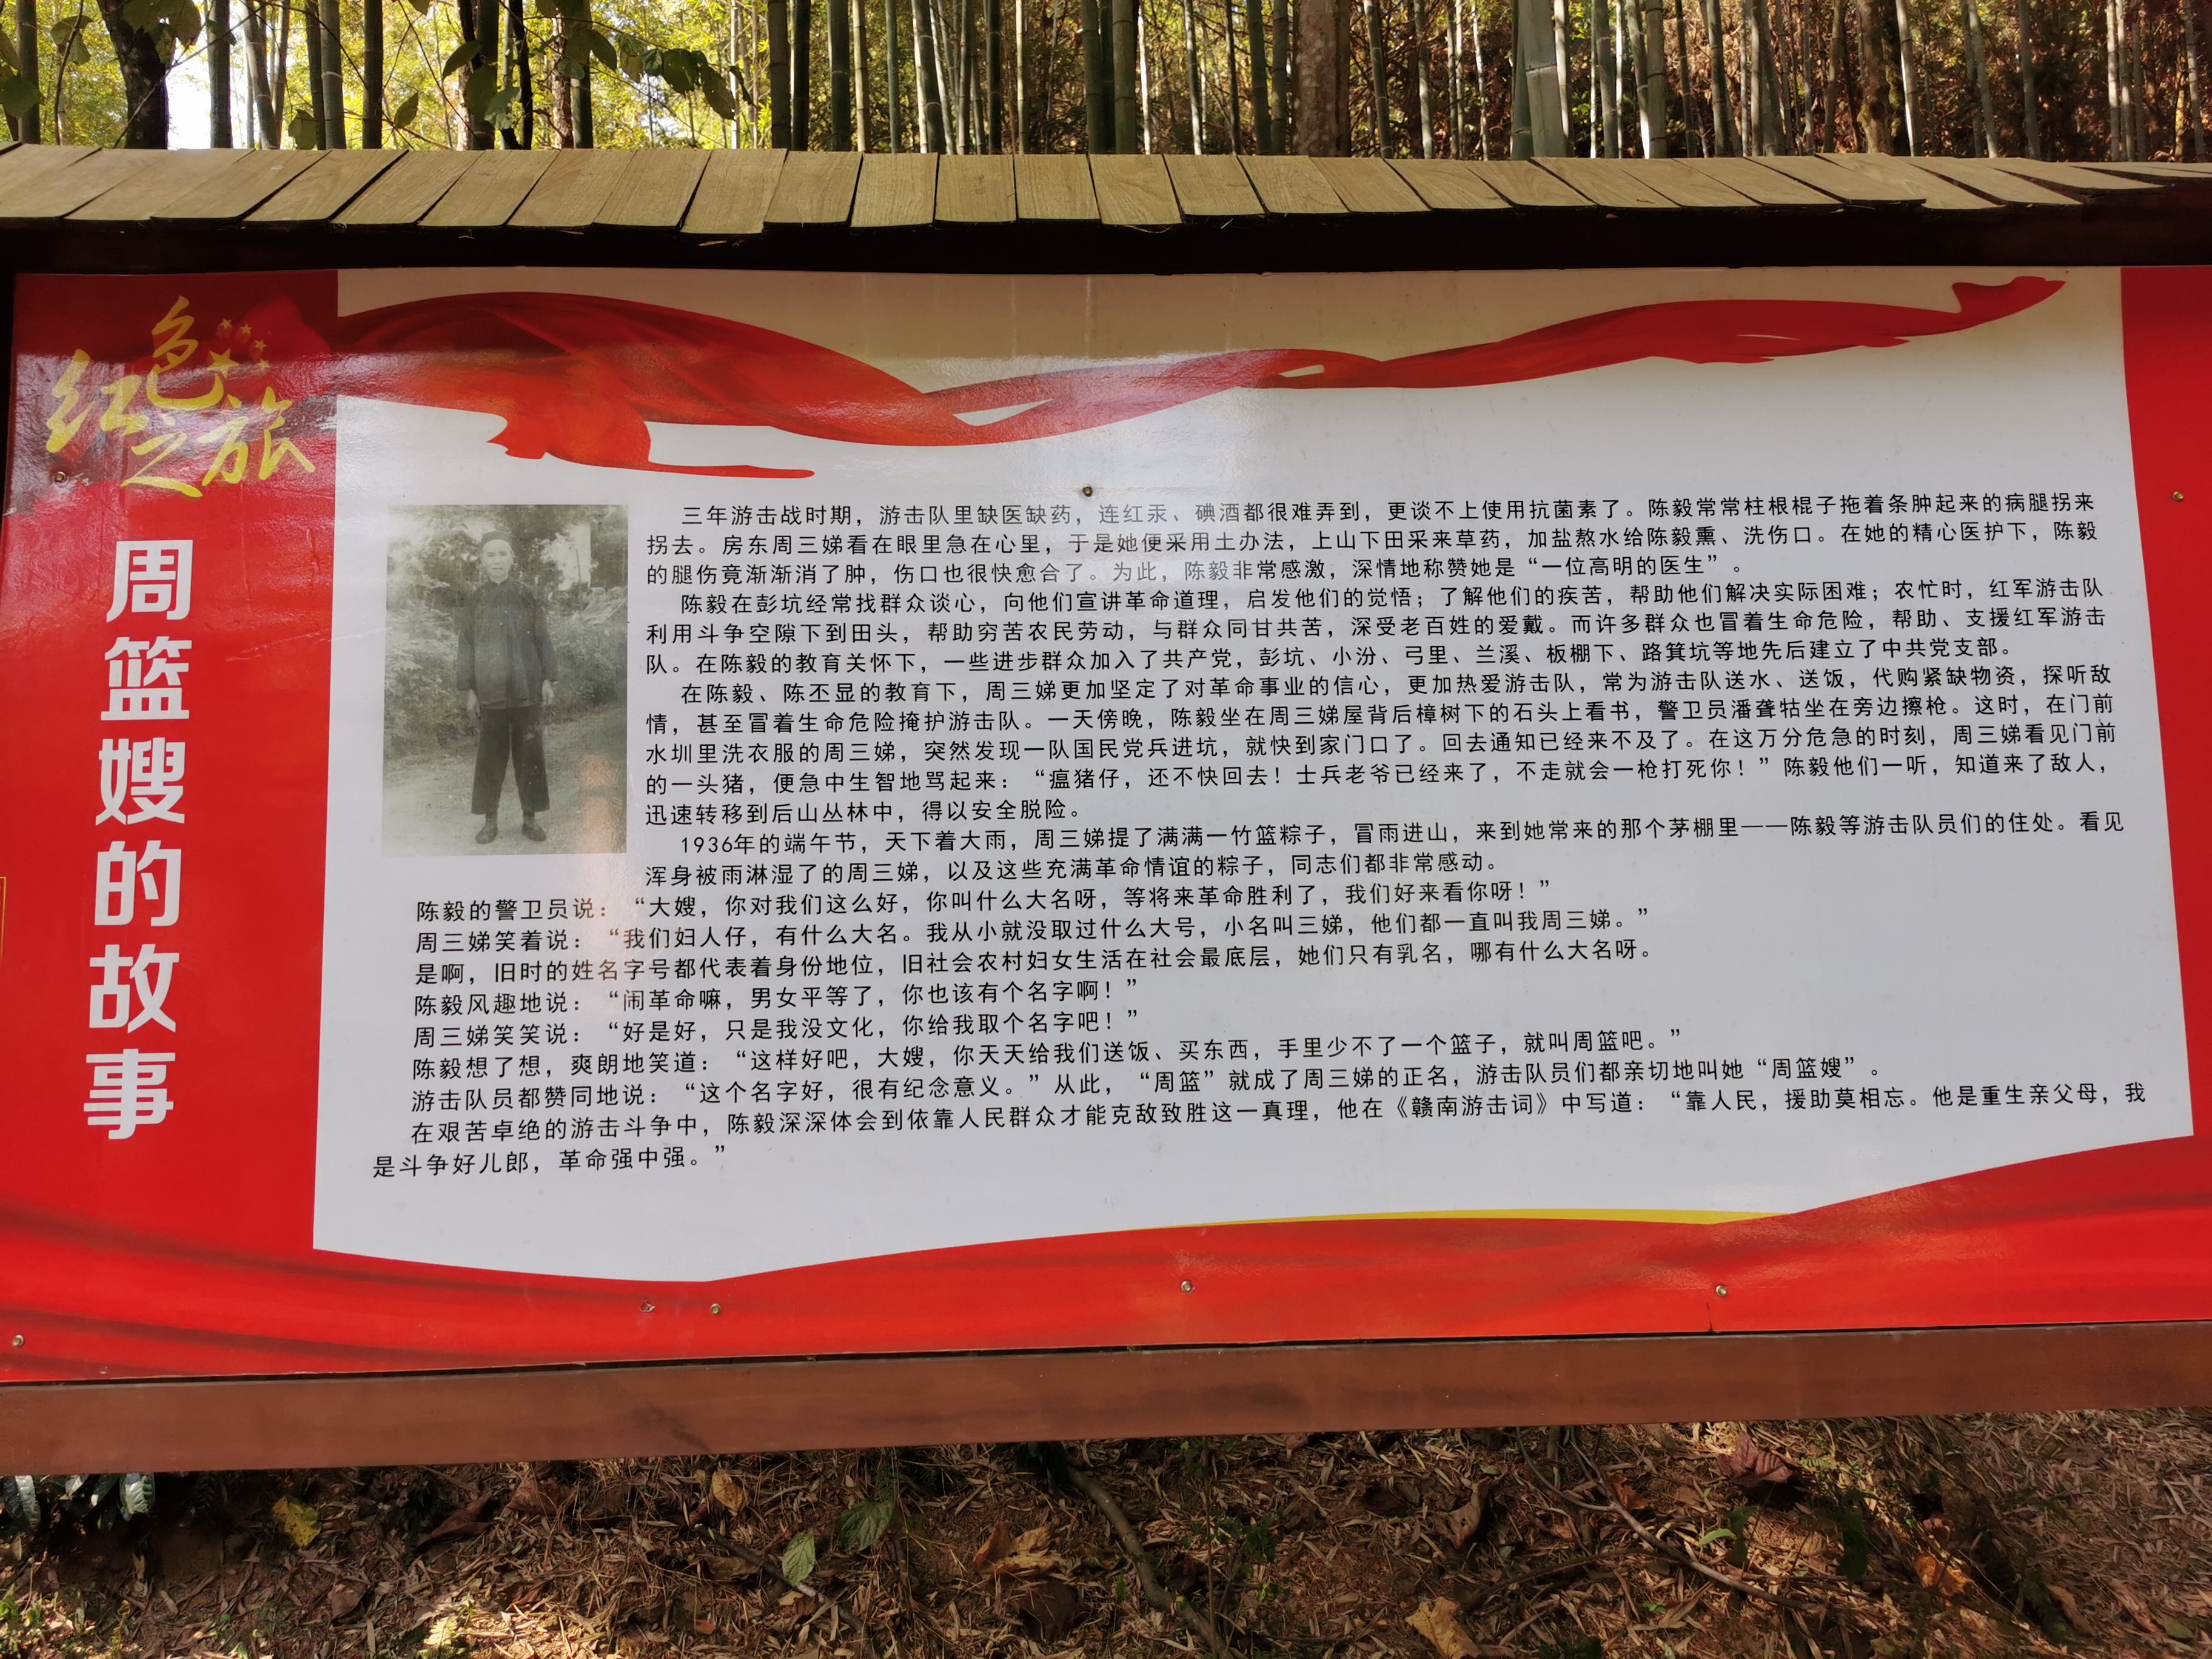 红色之旅
周篮嫂的故事
三年游击战时期，游击队里缺医缺药，连红汞、碘酒都很难弄到，更谈不上使用抗菌素了。陈毅常常柱根棍子拖着条肿起来的病腿拐来
拐去。房东周三娣看在眼里急在心里，于是她便采用土办法，上山下田采来草药，加盐熬水给陈毅熏、洗伤口。在她的精心医护下，陈毅
的腿伤竟渐渐消了肿，伤口也很快愈合了。为此，陈毅非常感激，深情地称赞她是“一位高明的医生”。
陈毅在彭坑经常找群众谈心，向他们宣讲革命道理，启发他们的觉悟；了解他们的疾苦，帮助他们解决实际困难；农忙时，红军游击队
利用斗争空隙下到田头，帮助穷苦农民劳动，与群众同甘共苦，深受老百姓的爱戴。而许多群众也冒着生命危险，帮助、支援红军游击
队。在陈毅的教育关怀下，一些进步群众加入了共产党，彭坑、小汾、弓里、兰溪、板棚下、路箕坑等地先后建立了中共党支部。
在陈毅、陈丕显的教育下，周三娣更加坚定了对革命事业的信心，更加热爱游击队，常为游击队送水、送饭，代购紧缺物资，探听敌
情，甚至冒着生命危险掩护游击队。一天傍晚，陈毅坐在周三娣屋背后樟树下的石头上看书，警卫员潘聋牯坐在旁边擦枪。这时，在门前
水圳里洗衣服的周三娣，突然发现一队国民党兵进坑，就快到家门口了。回去通知已经来不及了。在这万分危急的时刻，周三娣看见门前
的一头猪，便急中生智地骂起来：“瘟猪仔，还不快回去！士兵老爷已经来了，不走就会一枪打死你！”陈毅他们一听，知道来了敌人，
迅速转移到后山丛林中，得以安全脱险。
1936年的端午节，天下着大雨，周三娣提了满满一竹篮粽子，冒雨进山，来到她常来的那个茅棚里——陈毅等游击队员们的住处。看见
浑身被雨淋湿了的周三娣，以及这些充满革命情谊的粽子，同志们都非常感动。
陈毅的警卫员说：“大嫂，你对我们这么好，你叫什么大名呀，等将来革命胜利了，我们好来看你呀！”
周三娣笑着说：“我们妇人仔，有什么大名。我从小就没取过什么大号，小名叫三娣，他们都一直叫我周三娣。”
是啊，旧时的姓名字号都代表着身份地位，旧社会农村妇女生活在社会最底层，她们只有乳名，哪有什么大名呀。
陈毅风趣地说：“闹革命嘛，男女平等了，你也该有个名字啊！”
周三娣笑笑说：“好是好，只是我没文化，你给我取个名字吧！”
陈毅想了想，爽朗地笑道：“这样好吧，大嫂，你天天给我们送饭、买东西，手里少不了一个篮子，就叫周篮吧。”
游击队员都赞同地说：“这个名字好，很有纪念意义。”从此，“周篮”就成了周三娣的正名，游击队员们都亲切地叫她“周篮嫂”。
在艰苦卓绝的游击斗争中，陈毅深深体会到依靠人民群众才能克敌致胜这一真理，他在《赣南游击词》中写道：“靠人民，援助莫相忘。他是重生亲父母，我
是斗争好儿郎，革命强中强。”